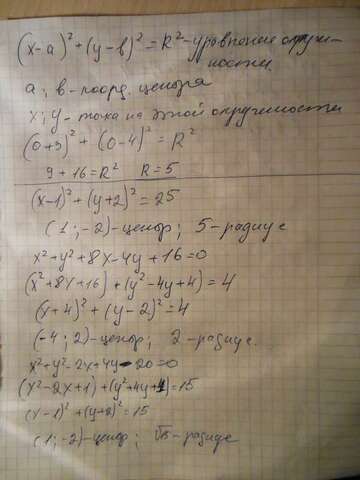 (x-a)² + (y-b)² = R² - уравнение окружности.
a; b - коорд. центра
x; y - точка на этой окружности
(0+3)² + (0-4)² = R²
9 + 16 = R² R = 5
(x-1)² + (y+2)² = 25
(1; -2) - центр; 5 - радиус
x² + y² + 8x - 4y + 16 = 0
(x² + 8x + 16) + (y² - 4y + 4) = 4
(x+4)² + (y-2)² = 4
(-4; 2) - центр; 2 - радиус.
x² + y² - 2x + 4y - 20 = 0
(x² - 2x + 1) + (y² + 4y + 4) = 15
(x-1)² + (y+2)² = 15
(1; -2) - центр; √15 - радиус